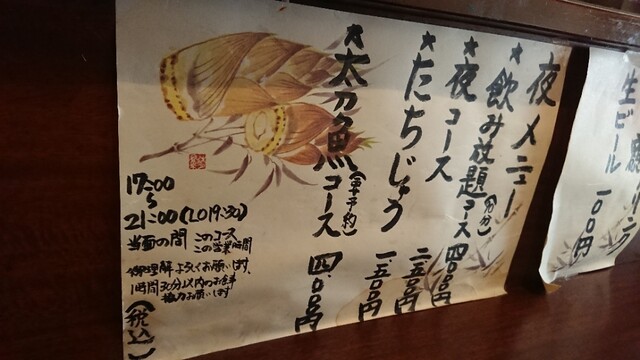 夜メニュー
★飲み放題コース(90分) 四、000円
★夜コース 二、五00円
★たちじゅう 一、五00円
★太刀魚コース(要予約) 四、000円
17:00
〜
21:00(LO19:30)
当面の間 このコース
この営業時間
御理解よろしくお願いします、
1時間30分以内のお食事
協力お願いします
(税込)
生ビール 一00円
リンク